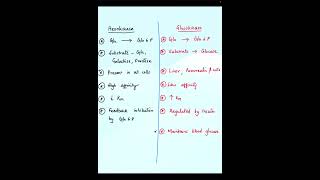 Hexokinase
Glu → Glu 6 P
Substrate - Glu,
Galactose, Fructose
Present in all cells
High affinity
↓ Km
Feedback inhibition
by Glu 6-P
Glucokinase
Glu → Glu 6 P
Substrate → Glucose
Liver, Pancreatic β cells
Low affinity
↑ Km
Regulated by Insulin
Maintains blood glucose